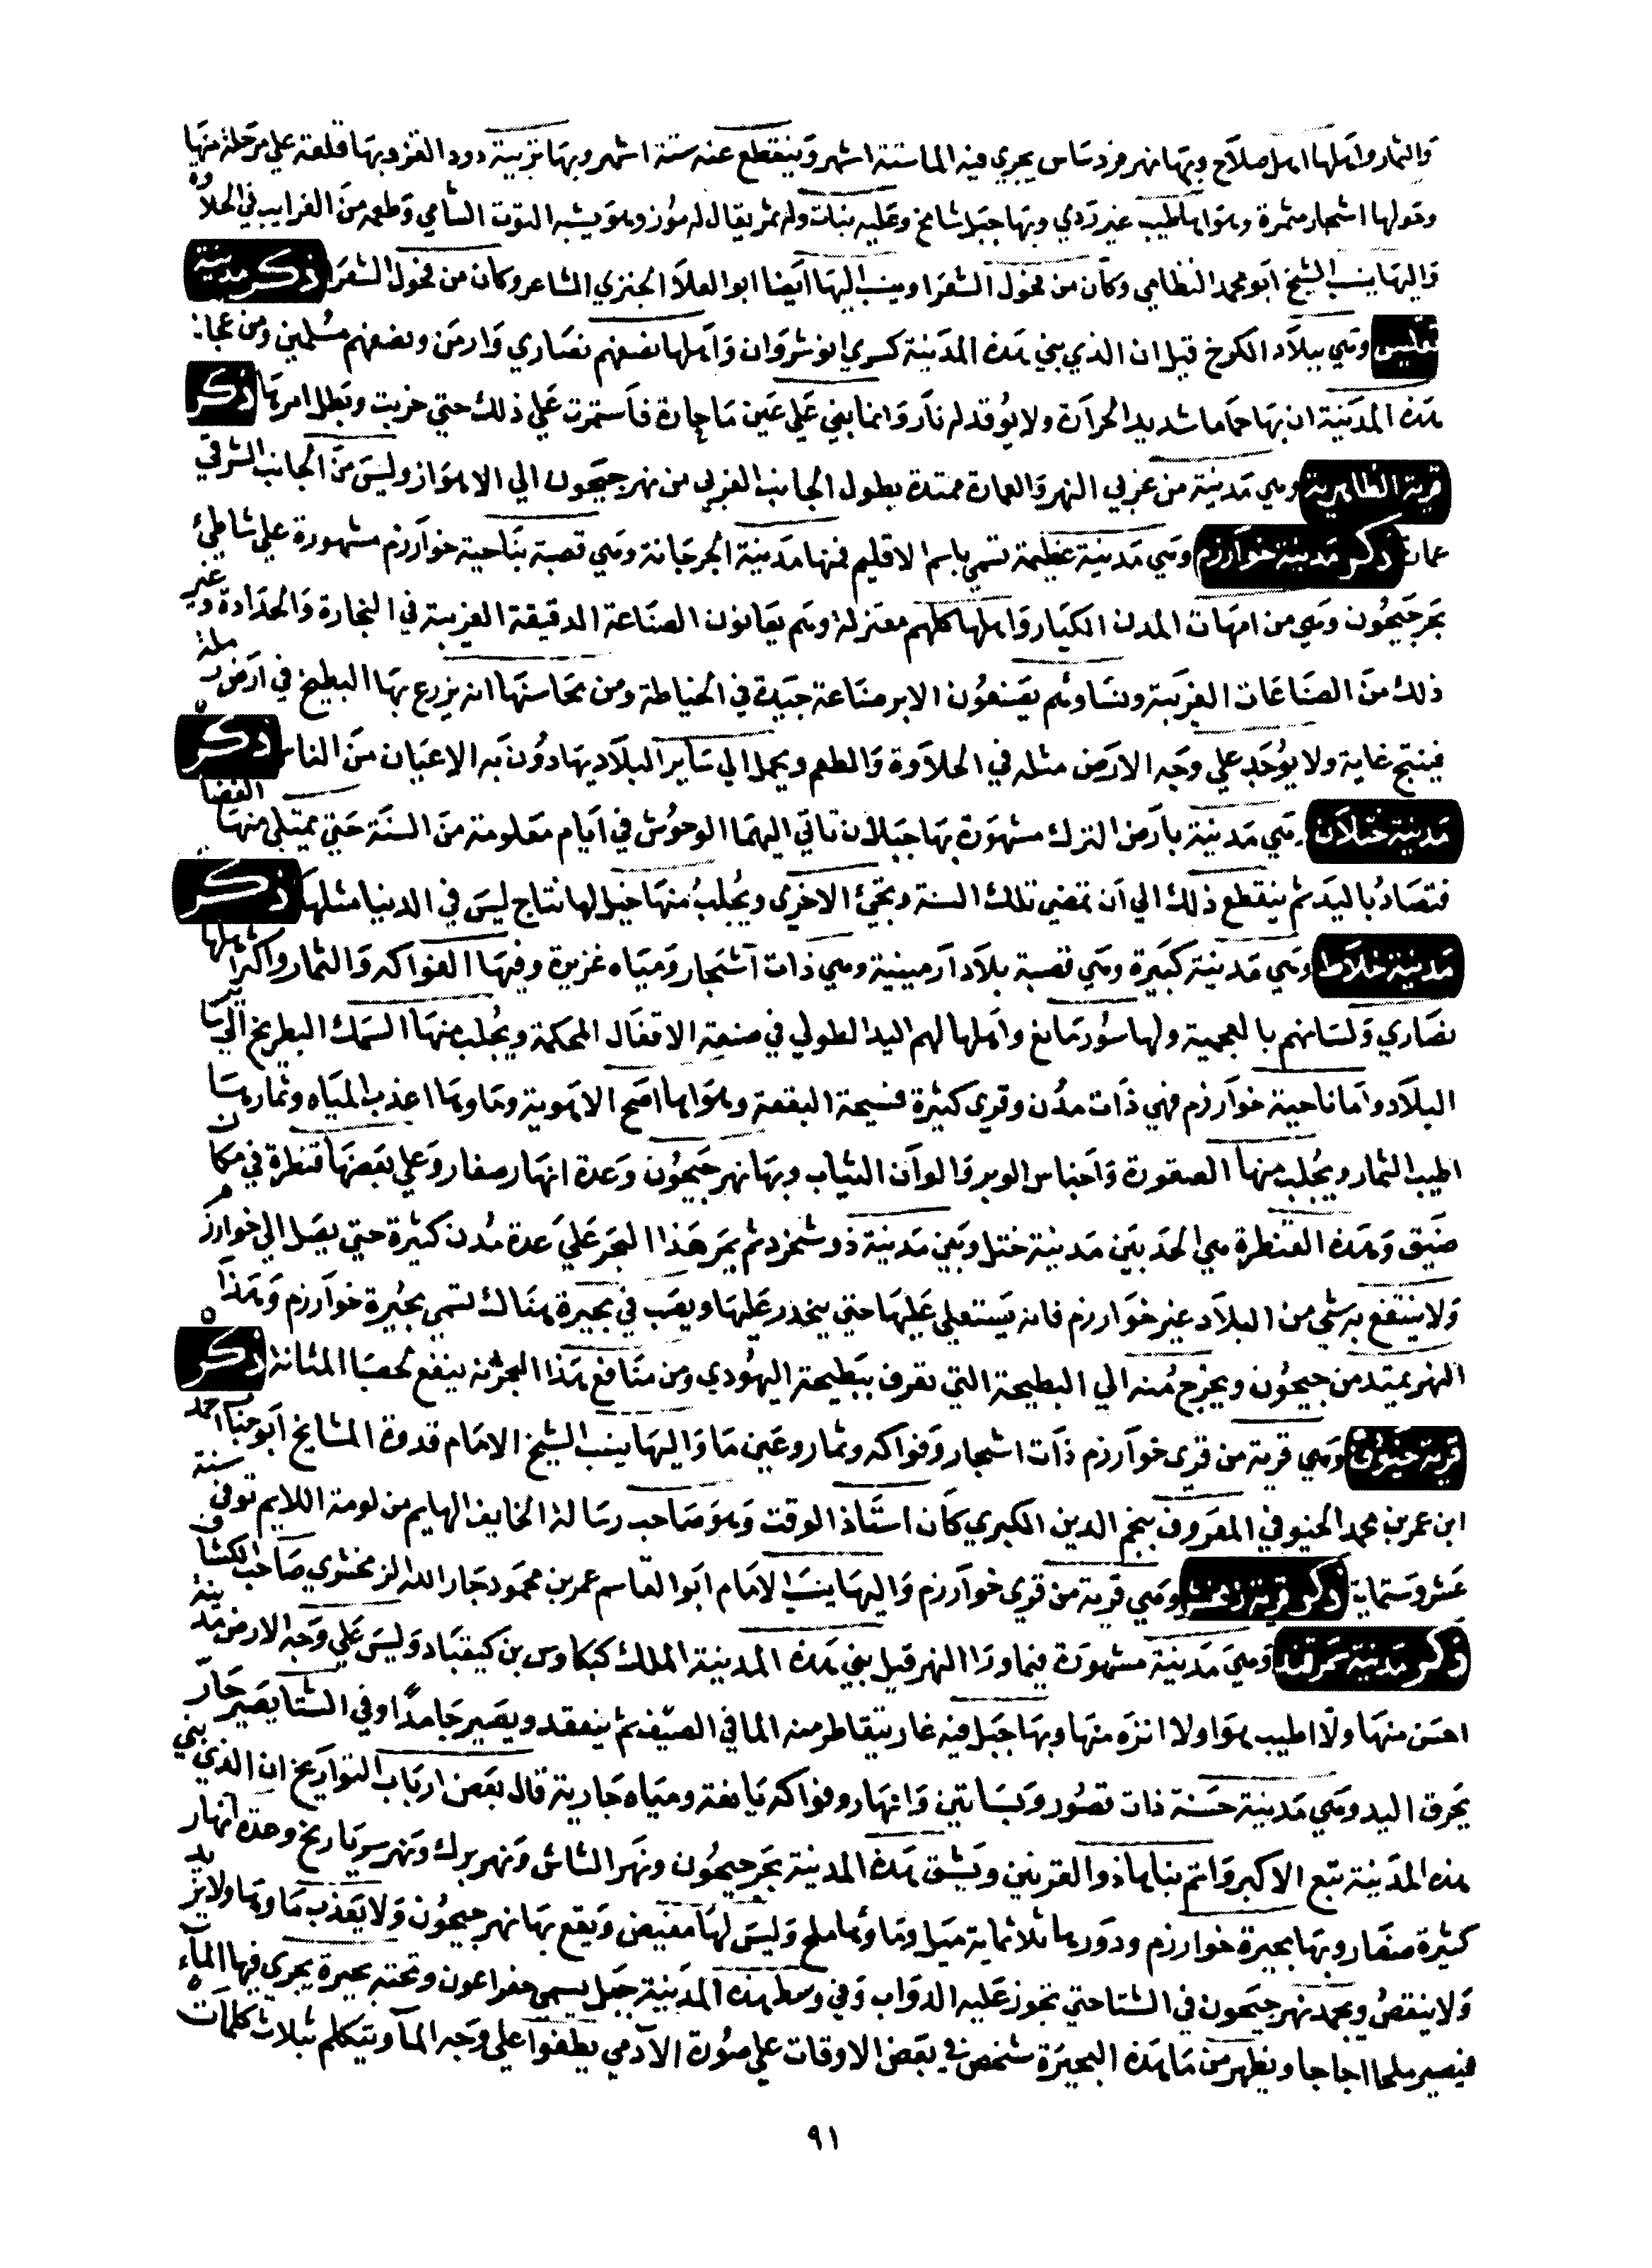 والثمار واهلها اهل صلاح وبها نهر فردساس يجري فيه الما ستة اشهر وينقطع عنه ستة اشهر وبها تربية دود القز وبها قلعة علي مرحلة منها
وحولها اشجار مثمرة وهواها طيب غير ردي وبها جبل شامخ وعليه نبات وله ثمر يقال له موز وهو يشبه التوت الشامي وطعمه من الغرايب في الحلاوة
واليها ينسب الشيخ ابو محمد النظامي وكان من فحول الشعرا وينسب اليها ايضا ابو العلا الجنزي الشاعر وكان من فحول الشعرا ذكر مدينة
تفليس وهي ببلاد الكرخ قيل ان الذي بني هذه المدينة كسري انوشروان واهلها نصفهم نصاري وارمن ونصفهم مسلمين ومن عجا
هذه المدينة ان بها حماما شديد الحرارة ولا يوقد له نار وانما بني علي عين ما حارة فاستمرت علي ذلك حتي خربت وبطل امرها ذكر
قرية الظاهرية وهي مدينة من غربي النهر والعمارة ممتدة بطول الجانب الغربي من نهر جيحون الي الاهواز وليس من الجانب الشرقي
عمارة ذكر مدينة خوارزم وهي مدينة عظيمة تسمي باسم الاقليم فمنها مدينة الجرجانة وهي قصبة بناحية خوارزم مشهورة علي شاطئ
بحر جيحون وهي من امهات المدن الكبار واهلها كلهم معتزلة وهم يعانون الصناعة الدقيقة الغريبة في النجارة والحدادة وغير
ذلك من الصناعات الغريبة ونساوهم يصنعون الابر صناعة جيدة في الخياطة ومن محاسنها انه يزرع بها البطيخ في ارض رملة
فينتج غاية ولا يوجد علي وجه الارض مثله في الحلاوة والطعم ويحمل الي ساير البلاد يهادون به الاعيان من الناس ذكر
مدينة ختلان وهي مدينة بارض الترك مشهورة بها جبلان تاتي اليهما الوحوش في ايام معلومة من السنة حتي يمتلي منها الفضا
فتصاد باليد ثم ينقطع ذلك الي ان تمضي تلك السنة وتجئ الاخرى ويجلب منها خيل لها نتاج ليس في الدنيا مثلها ذكر
مدينة خلاط وهي مدينة كبيرة وهي قصبة بلاد ارمينية وهي ذات اشجار ومياه غزيرة وفيها الفواكه والثمار واكثر اهلها
نصاري ولسانهم بالعجمية ولها سور مانع واهلها لهم اليد الطولي في صنعة الاقفال المحكمة ويجلب منها السمك البطريخ الي ساير
البلاد واما ناحية خوارزم فهي ذات مدن وقري كثيرة فسيحة البقعة وهواها اصح الاهوية وماوها اعذب المياه وثمارها
اطيب الثمار ويجلب منها الصقورة واجناس الوبر والوان الثياب وبها نهر جيحون وعدة انهار صغار وعلي بعضها قنطرة في مكان
ضيق وهذه القنطرة هي الحد بين مدينة ختل وبين مدينة ذوشخرد ثم يمر هذا البحر علي عدة مدن كثيرة حتي يصل الي خوارزم
ولا ينتفع به شي من البلاد غير خوارزم فانه يستعلي عليها حتي ينحدر عليها ويصب في بحيرة هناك تسمي بحيرة خوارزم وهذا
النهر يمتد من جيحون ويخرج منه الي البطيحة التي تعرف ببطيحة اليهودي ومن منافع هذا البحر انه ينفع لحصا المثانة ذكر
قرية خيوق وهي قرية من قري خوارزم ذات اشجار وفواكه وثمار وعين ما واليها ينسب الشيخ الامام قدوة المشايخ ابو جناب احمد
ابن عمر بن محمد الخيوفي المعروف بنجم الدين الكبري كان استاذ الوقت وهو صاحب رسالة الخايف الهايم من لومة اللايم توفي سنة
عشر وستماية ذكر قرية زمخشر وهي قرية من قري خوارزم واليها ينسب الامام ابو القاسم عمر بن محمود جار الله الزمخشري صاحب الكشاف
ذكر مدينة سمرقند وهي مدينة مشهورة فيما ورا النهر قيل بني هذه المدينة الملك كيكاوس بن كيقباد وليس علي وجه الارض مدينة
احسن منها ولا اطيب هوا ولا انزه منها وبها جبل فيه غار يتقاطر منه الما في الصيف ثم ينعقد ويصير جامدا وفي الشتا يصير حار
يحرق اليد وهي مدينة حسنة ذات قصور وبساتين وانهار وفواكه يانعة ومياه جارية قال بعض ارباب التواريخ ان الذي بني
هذه المدينة تبع الاكبر واتم بناها ذو القرنين ويشق هذه المدينة بحر جيحون ونهر الشاش ونهر برك ونهر سوياريخ وعدة انهار
كثيرة صغار وبها بحيرة خوارزم ودورها ثلاثماية ميل وماوها ملح وليس لها مغيض ويقع بها نهر جيحون ولا يعذب ماوها ولا يزيد
ولا ينقص ويجمد نهر جيحون في الشتا حتي تجوز عليه الدواب وفي وسط هذه المدينة جبل يسمي جفراغون وتحته بحيرة يجري فيها الماء
فيصير ملحا اجاجا ويظهر من ما هذه البحيرة شخص في بعض الاوقات علي صورة الآدمي يطفوا علي وجه الما ويتكلم بثلاث كلمات
٩١